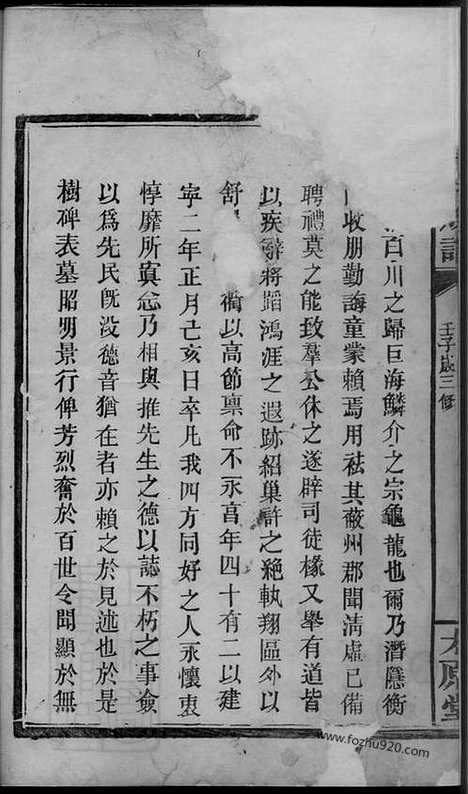 譜
壬子歲三修
太原堂
百川之歸巨海鱗介之宗龜龍也爾乃潛隱衡
收朋勤誨童蒙賴焉用祛其蔽州郡聞清虛已備
聘禮莫之能致羣公休之遂辟司徒掾又舉有道皆
以疾辭將蹈鴻涯之遐跡紹巢許之絕軌翔區外以
舒衢以高節稟命不永亯年四十有二以建
寧二年正月己亥日卒凡我四方同好之人永懷哀
惇靡所寘念乃相與推先生之德以誌不朽之事僉
以爲先民旣没德音猶在者亦賴之於見述也於是
樹碑表墓昭明景行俾芳烈奮於百世令問顯於無
www.fozhu920.com